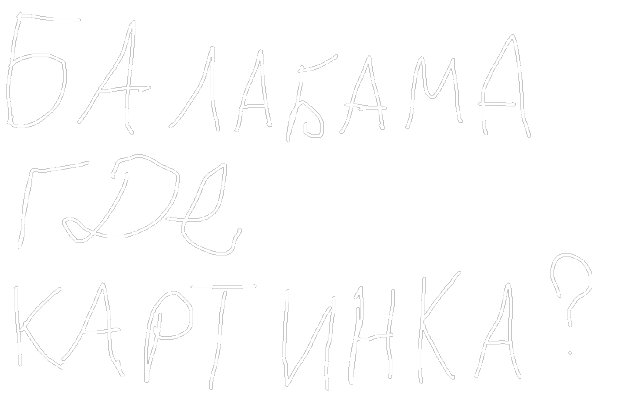 БАЛАБАМА
ГДЕ
КАРТИНКА?